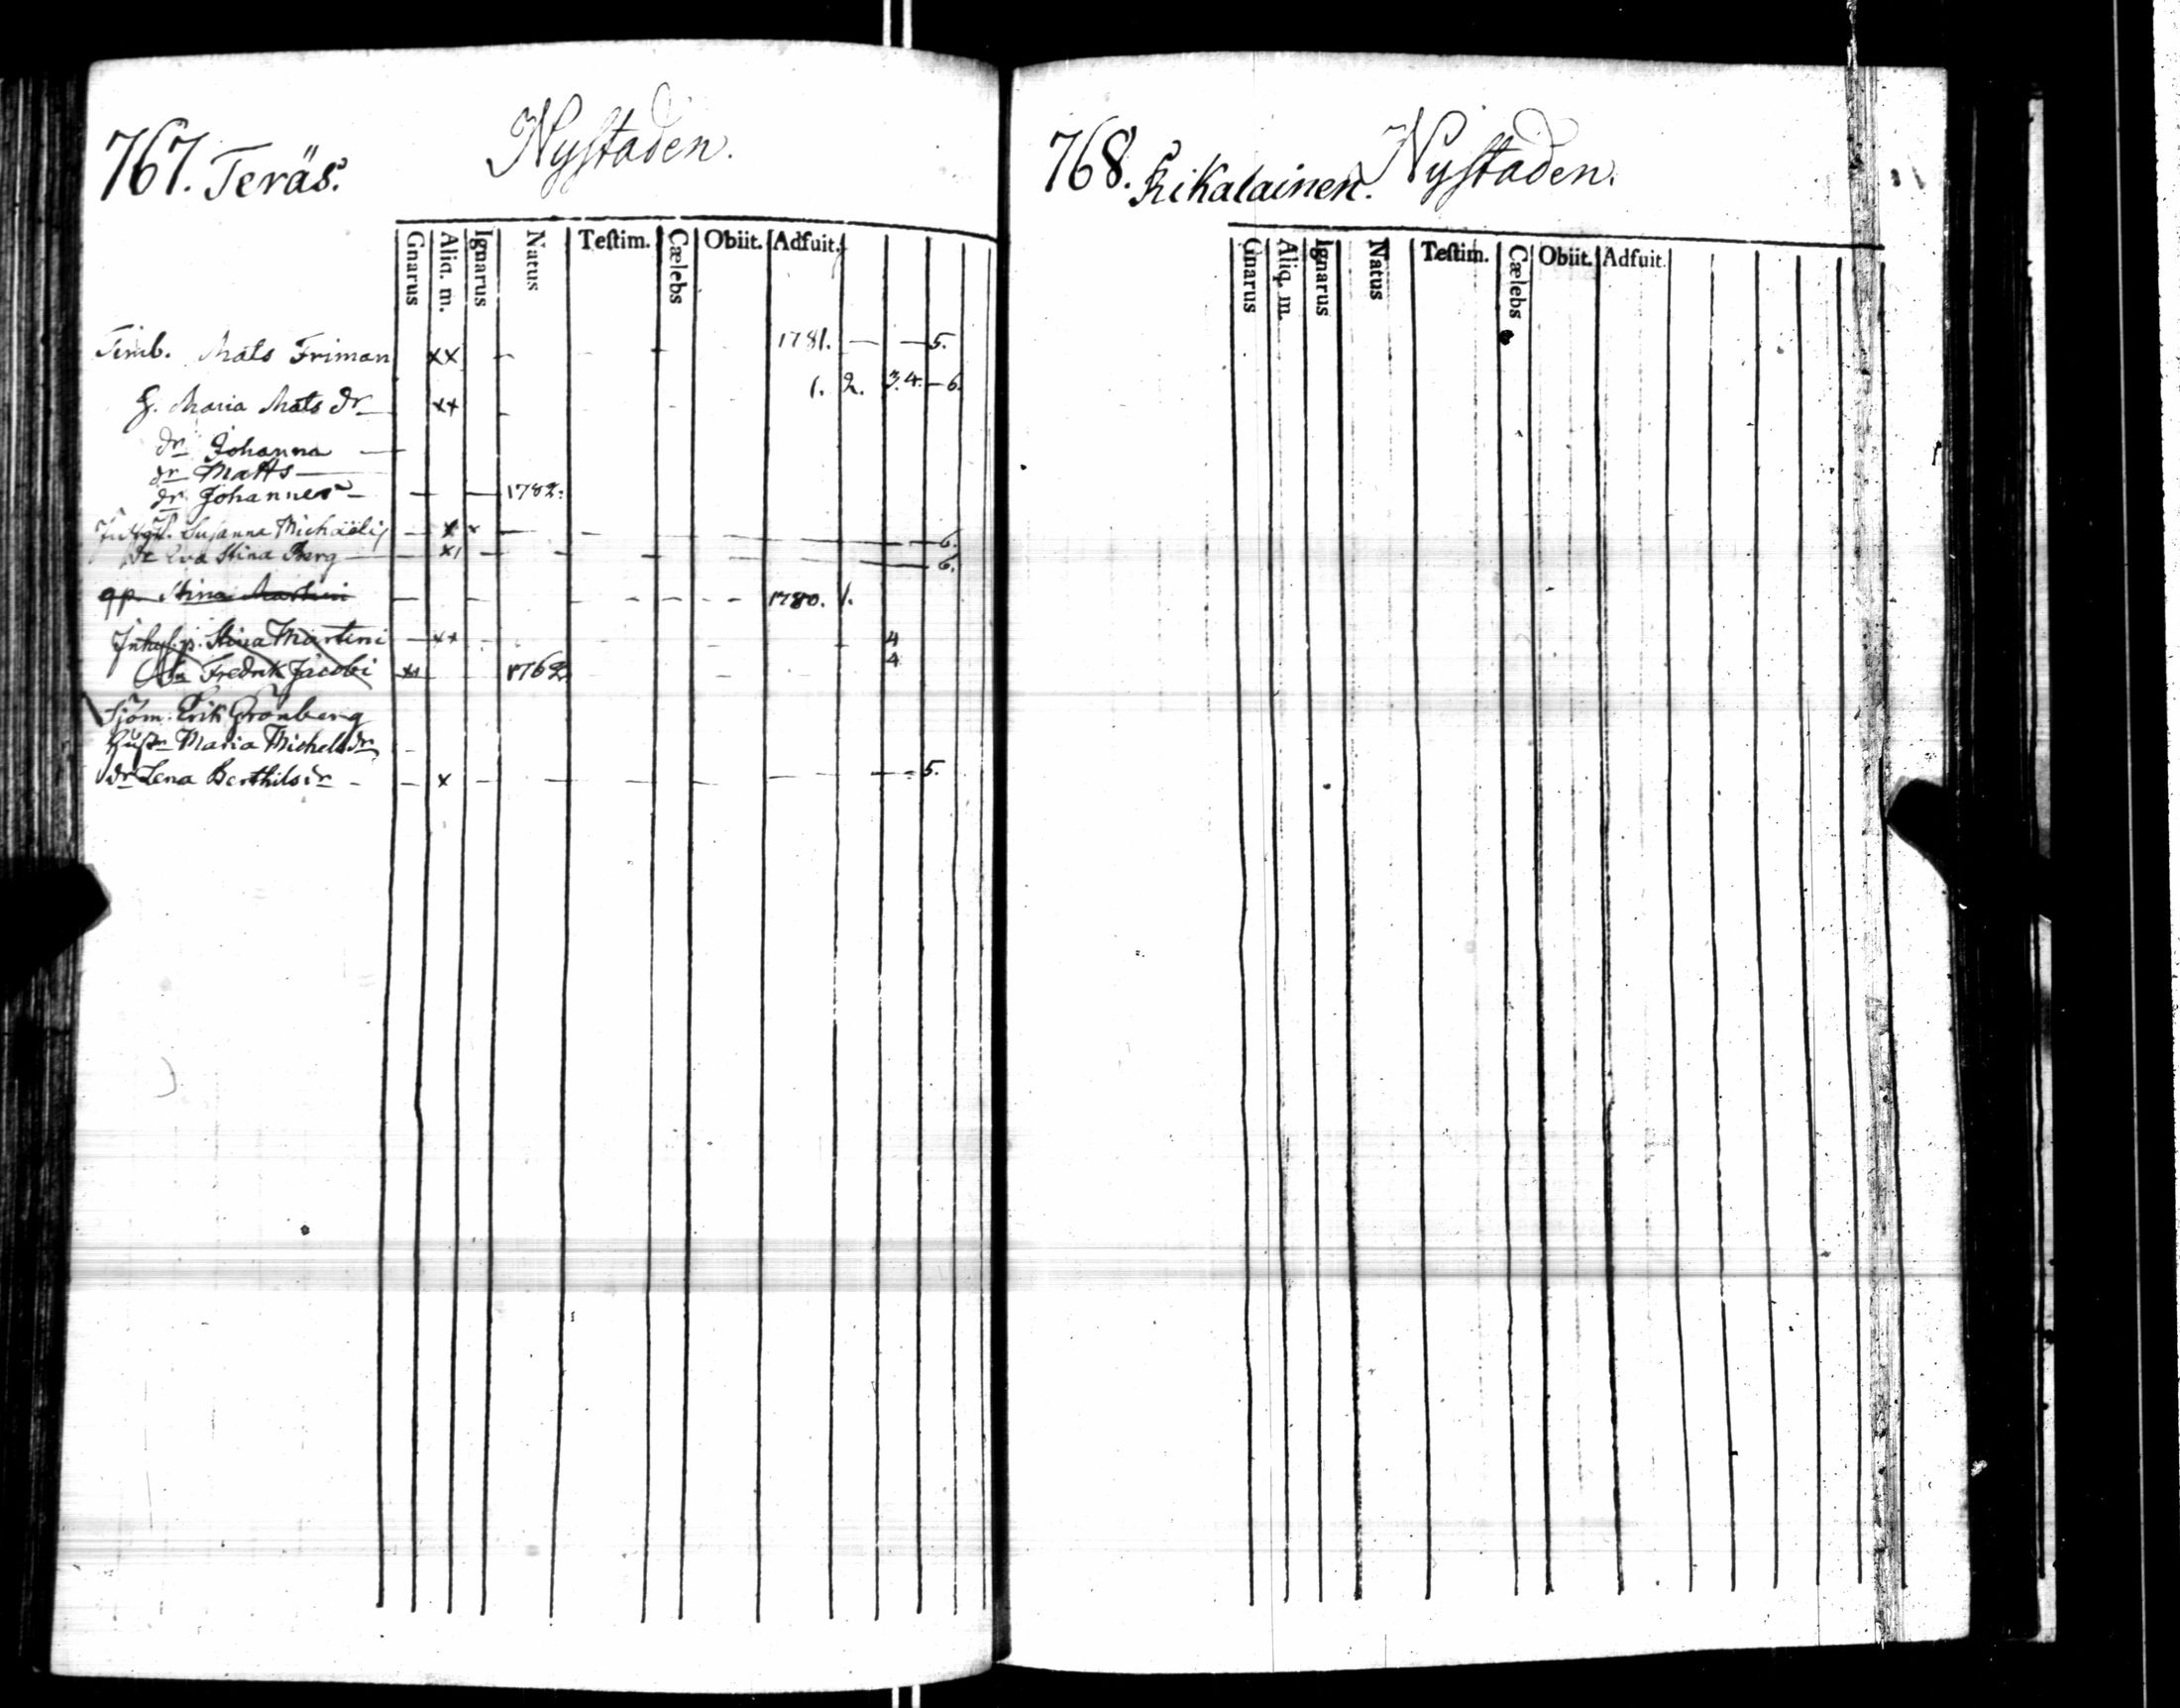 767. Teräs. Nystaden.
Gnarus Aliq. m. Ignarus Natus Testim. Cælebs Obiit. Adfuit.
Timb. Mats Friman xx - - 1781. — — 5.
H. Maria Mats dr xx - - 1. 2. 3.4. - 6.
dr Johanna —
Matts —
Johannes — — — 1782.
Susanna Michaëlis — x x — — 6.
Eva Stina Berg — x1 - - — 6.
qp. Stina Martini — - - - - - 1780. 1.
Inhys. p. Stina Martini — xx - - - 4
Fredrik Jacobi x1 1762 - 4
Sjöm. Erik Grönberg
Hustr Maria Michelsdr -
dr Lena Berthilsdr - — x - — — — — — - 5.
768. Kikalainen. Nystaden.
Gnarus Aliq. m. Ignarus Natus Testim. Cælebs Obiit. Adfuit.